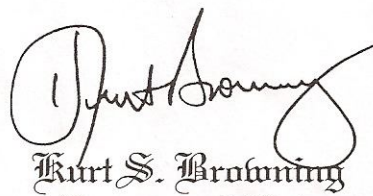 Kurt S. Browning
Kurt S. Browning